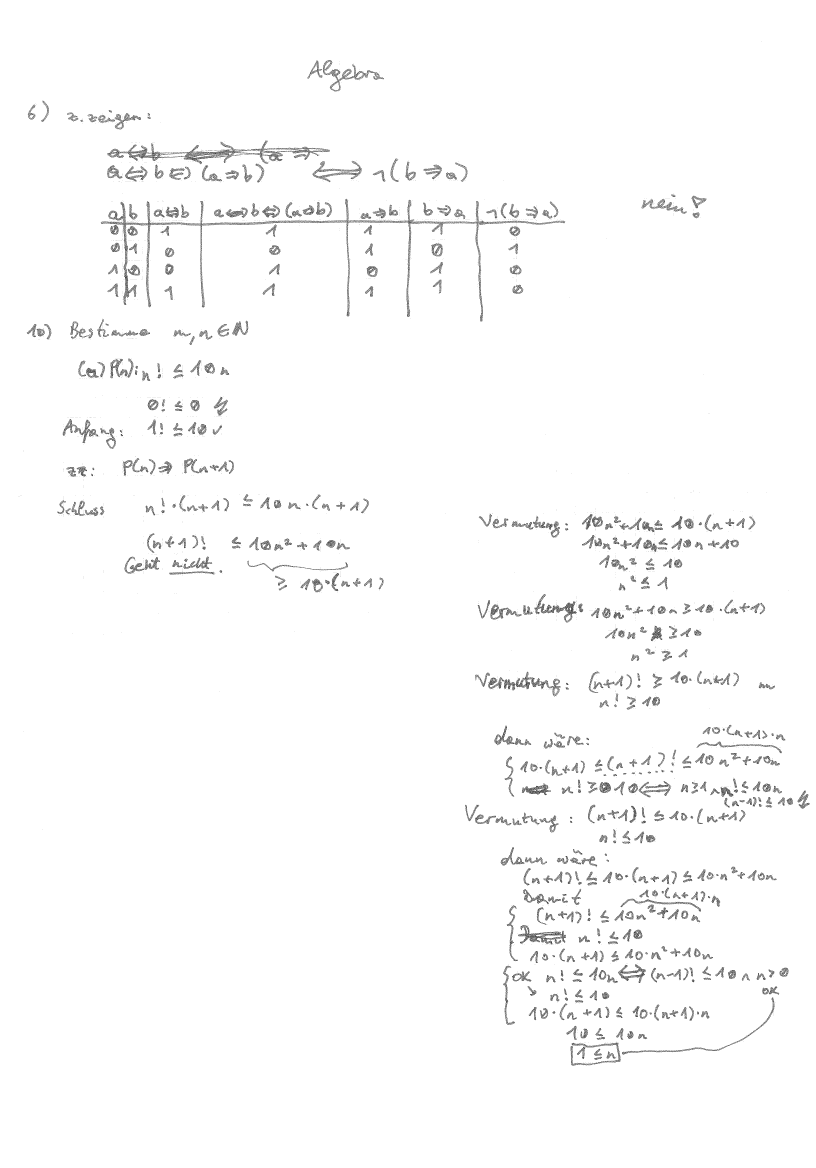 Algebra
6) z.zeigen:
a⇔b ⇔ (a ⇒
a⇔b⇔(a⇒b) ⇔ ¬(b⇒a)
nein!
a b a⇔b a⇔b⇔(a⇒b) a⇒b b⇒a ¬(b⇒a)
0 0 1 1 1 1 0
0 1 0 0 1 0 1
1 0 0 1 0 1 0
1 1 1 1 1 1 0
10) Bestimme m,n∈ℕ
(a) P(n): n! ≤ 10n
0! ≤ 0 ↯
Anfang: 1! ≤ 10 ✓
zz: P(n) ⇒ P(n+1)
Schluss n!·(n+1) ≤ 10n·(n+1)
(n+1)! ≤ 10n²+10n
Geht nicht.
≥ 10·(n+1)
Vermutung: 10n²+10n ≤ 10·(n+1)
10n²+10n ≤ 10n+10
10n² ≤ 10
n² ≤ 1
Vermutung: 10n²+10n ≥ 10·(n+1)
10n² ≥ 10
n² ≥ 1
Vermutung: (n+1)! ≥ 10·(n+1)
n! ≥ 10
dann wäre:
10·(n+1)·n
10·(n+1) ≤ (n+1)! ≤ 10n²+10n
n! ≥ 10 ⇔ n≥1 ∧ n! ≤ 10n
(n-1)! ≤ 10 ↯
Vermutung: (n+1)! ≤ 10·(n+1)
n! ≤ 10
dann wäre:
(n+1)! ≤ 10·(n+1) ≤ 10·n²+10n
Damit 10·(n+1)·n
(n+1)! ≤ 10n²+10n
Damit n! ≤ 10
10·(n+1) ≤ 10·n²+10n
ok n! ≤ 10n ⇔ (n-1)! ≤ 10 ∧ n>0
n! ≤ 10 ok
10·(n+1) ≤ 10·(n+1)·n
10 ≤ 10n
1 ≤ n